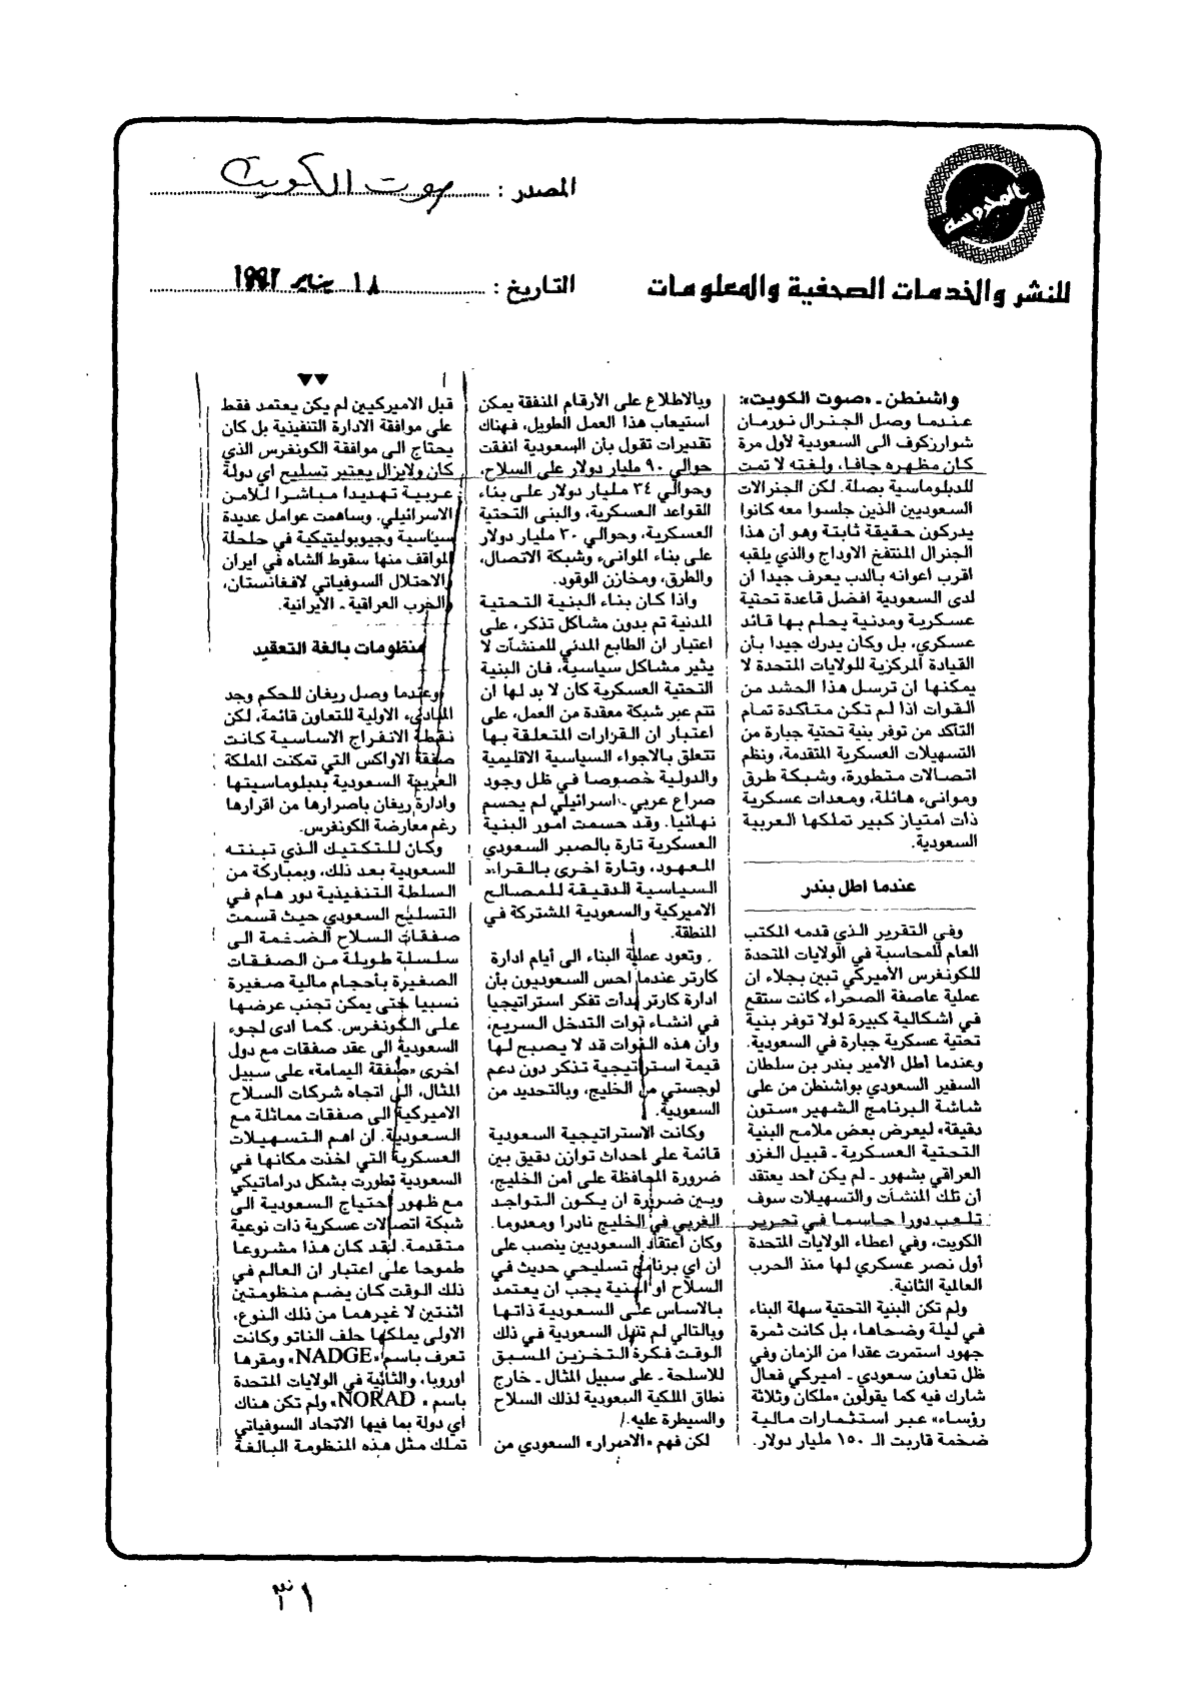 المحروسة
للنشر والخدمات الصحفية والمعلومات
المصدر : صوت الكويت
التاريخ : ١٨ يناير ١٩٩٢
واشنطن ـ «صوت الكويت»:
عندما وصل الجنرال نورمان
شوارزكوف الى السعودية لأول مرة
كان مظهره جافا، ولغته لا تمت
للدبلوماسية بصلة. لكن الجنرالات
السعوديين الذين جلسوا معه كانوا
يدركون حقيقة ثابتة وهو أن هذا
الجنرال المنتفخ الاوداج والذي يلقبه
اقرب اعوانه بالدب يعرف جيدا ان
لدى السعودية افضل قاعدة تحتية
عسكرية ومدنية يحلم بها قائد
عسكري، بل وكان يدرك جيدا بأن
القيادة المركزية للولايات المتحدة لا
يمكنها ان ترسل هذا الحشد من
القوات اذا لم تكن متأكدة تمام
التأكد من توفر بنية تحتية جبارة من
التسهيلات العسكرية المتقدمة، ونظم
اتصالات متطورة، وشبكة طرق
وموانىء هائلة، ومعدات عسكرية
ذات امتياز كبير تملكها العربية
السعودية.
عندما اطل بندر
وفي التقرير الذي قدمه المكتب
العام للمحاسبة في الولايات المتحدة
للكونغرس الأميركي تبين بجلاء ان
عملية عاصفة الصحراء كانت ستقع
في اشكالية كبيرة لولا توفر بنية
تحتية عسكرية جبارة في السعودية.
وعندما أطل الأمير بندر بن سلطان
السفير السعودي بواشنطن من على
شاشة البرنامج الشهير «ستون
دقيقة» ليعرض بعض ملامح البنية
التحتية العسكرية ـ قبيل الغزو
العراقي بشهور ـ لم يكن احد يعتقد
أن تلك المنشآت والتسهيلات سوف
تلعب دورا حاسما في تحرير
الكويت، وفي اعطاء الولايات المتحدة
أول نصر عسكري لها منذ الحرب
العالمية الثانية.
ولم تكن البنية التحتية سهلة البناء
في ليلة وضحاها، بل كانت ثمرة
جهود استمرت عقدا من الزمان وفي
ظل تعاون سعودي ـ اميركي فعال
شارك فيه كما يقولون «ملكان وثلاثة
رؤساء» عبر استثمارات مالية
ضخمة قاربت الـ ١٥٠ مليار دولار.
وبالاطلاع على الأرقام المنفقة يمكن
استيعاب هذا العمل الطويل، فهناك
تقديرات تقول بأن السعودية انفقت
حوالي ٩٠ مليار دولار على السلاح،
وحوالي ٣٤ مليار دولار على بناء
القواعد العسكرية، والبنى التحتية
العسكرية، وحوالي ٣٠ مليار دولار
على بناء الموانىء وشبكة الاتصال،
والطرق، ومخازن الوقود.
واذا كان بناء البنية التحتية
المدنية تم بدون مشاكل تذكر، على
اعتبار ان الطابع المدني للمنشآت لا
يثير مشاكل سياسية، فان البنية
التحتية العسكرية كان لا بد لها ان
تتم عبر شبكة معقدة من العمل، على
اعتبار ان القرارات المتعلقة بها
تتعلق بالاجواء السياسية الاقليمية
والدولية خصوصا في ظل وجود
صراع عربي ـ اسرائيلي لم يحسم
نهائيا. وقد حسمت امور البنية
العسكرية تارة بالصبر السعودي
المعهود، وتارة اخرى بالقراءة
السياسية الدقيقة للمصالح
الاميركية والسعودية المشتركة في
المنطقة.
وتعود عملية البناء الى أيام ادارة
كارتر عندما احس السعوديون بأن
ادارة كارتر بدأت تفكر استراتيجيا
في انشاء قوات التدخل السريع،
وأن هذه القوات قد لا يصبح لها
قيمة استراتيجية تذكر دون دعم
لوجستي من الخليج، وبالتحديد من
السعودية.
وكانت الاستراتيجية السعودية
قائمة على احداث توازن دقيق بين
ضرورة المحافظة على أمن الخليج،
وبين ضرورة ان يكون التواجد
الغربي في الخليج نادرا ومعدوما.
وكان اعتقاد السعوديين ينصب على
ان اي برنامج تسليحي حديث في
السلاح او البنية يجب ان يعتمد
بالاساس على السعودية ذاتها
وبالتالي لم تنل السعودية في ذلك
الوقت فكرة التخزين المسبق
للاسلحة ـ على سبيل المثال ـ خارج
نطاق الملكية السعودية لذلك السلاح
والسيطرة عليه.
لكن فهم «الاصرار» السعودي من
قبل الاميركيين لم يكن يعتمد فقط
على موافقة الادارة التنفيذية بل كان
يحتاج الى موافقة الكونغرس الذي
كان ولايزال يعتبر تسليح اي دولة
عربية تهديدا مباشرا للأمن
الاسرائيلي. وساهمت عوامل عديدة
سياسية وجيوبوليتيكية في حلحلة
المواقف منها سقوط الشاه في ايران
والاحتلال السوفياتي لافغانستان،
والحرب العراقية ـ الأيرانية.
منظومات بالغة التعقيد
وعندما وصل ريغان للحكم وجد
المبادىء الاولية للتعاون قائمة، لكن
نقطة الانفراج الاساسية كانت
صفقة الاواكس التي تمكنت المملكة
العربية السعودية بدبلوماسيتها
وادارة ريغان باصرارها من اقرارها
رغم معارضة الكونغرس.
وكان للتكتيك الذي تبنته
السعودية بعد ذلك، وبمباركة من
السلطة التنفيذية دور هام في
التسليح السعودي حيث قسمت
صفقات السلاح الضخمة الى
سلسلة طويلة من الصفقات
الصغيرة بأحجام مالية صغيرة
نسبيا حتى يمكن تجنب عرضها
على الكونغرس. كما ادى لجوء
السعودية الى عقد صفقات مع دول
اخرى «صفقة اليمامة» على سبيل
المثال، الى اتجاه شركات السلاح
الاميركية الى صفقات مماثلة مع
السعودية. ان اهم التسهيلات
العسكرية التي اخذت مكانها في
السعودية تطورت بشكل دراماتيكي
مع ظهور احتياج السعودية الى
شبكة اتصالات عسكرية ذات نوعية
متقدمة. لقد كان هذا مشروعا
طموحا على اعتبار ان العالم في
ذلك الوقت كان يضم منظومتين
اثنتين لا غيرهما من ذلك النوع،
الاولى يملكها حلف الناتو وكانت
تعرف باسم «NADGE» ومقرها
اوروبا، والثانية في الولايات المتحدة
باسم «NORAD» ولم تكن هناك
أي دولة بما فيها الاتحاد السوفياتي
تملك مثل هذه المنظومة البالغة